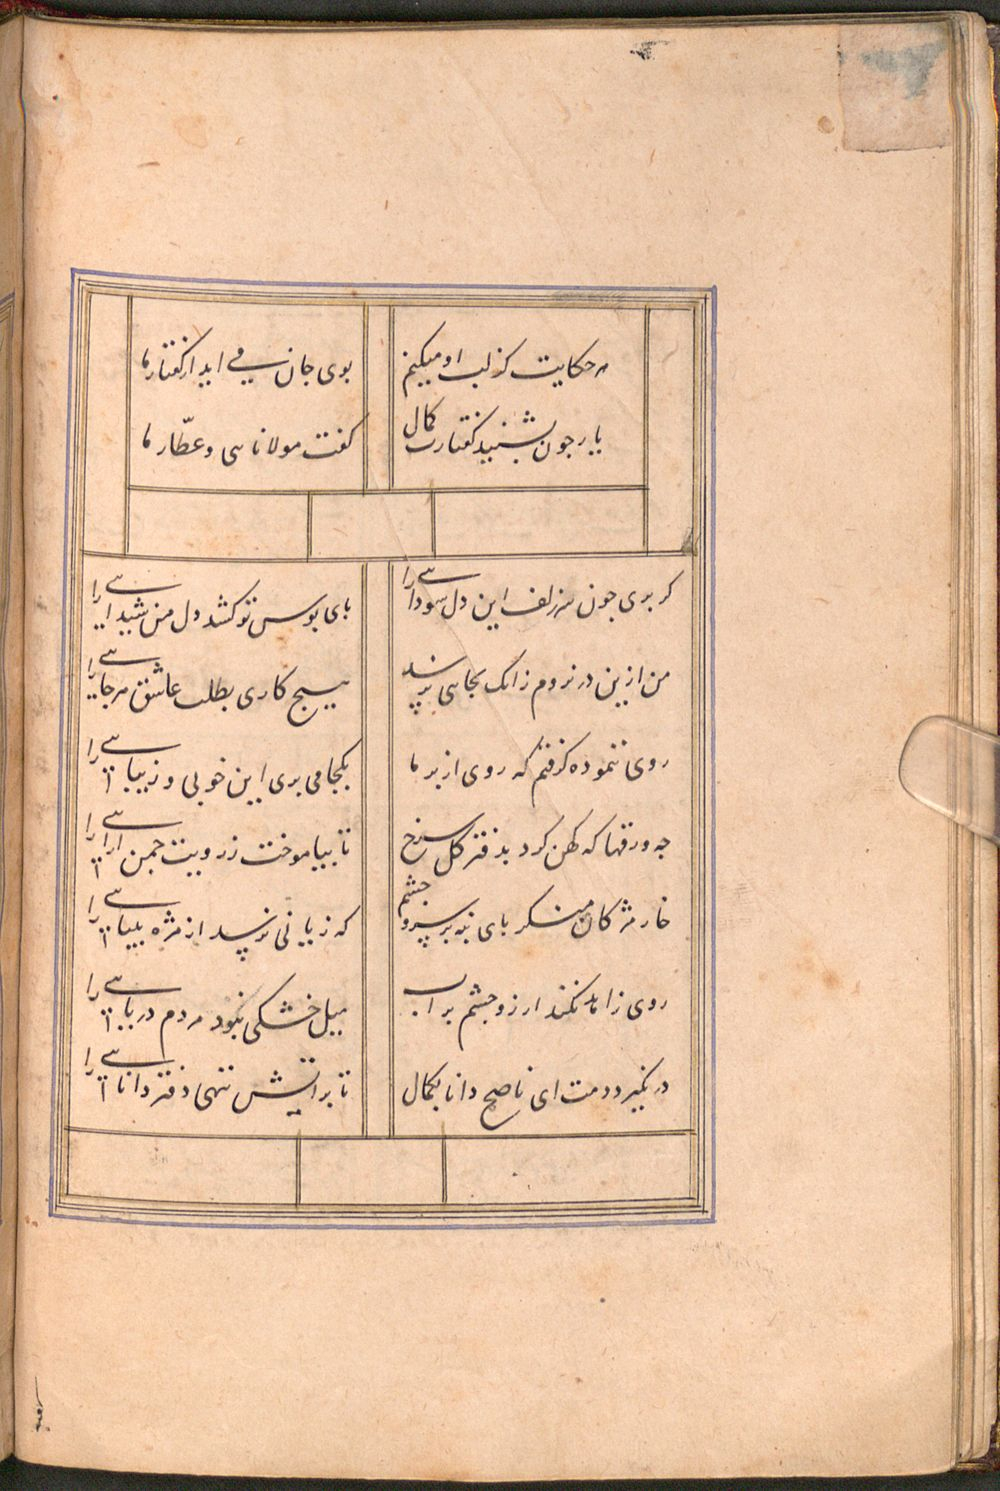 هر حکایت کز لب او میکنیم
بوی جان می آید از گفتار ما
یار چون بشنید گفتارت کمال
گفت مولانا سی و عطار ما
گر بری چون سر زلف این دل سودایی را
پای بوس تو کشد دل من شیدایی را
من ازین در نروم زانک بجایی نرسد
هیچ کاری بطلب عاشق هر جایی را
روی ننموده گرفتم که روی از بر ما
بکجا می بری این خوبی و زیبایی را
چه ورقها که کهن کرد بدفتر گل سرخ
تا بیاموخت ز رویت چمن آرایی را
خار مژگان منگر پای بنه بر سر و چشم
که زیانی نرسد از مژه بینایی را
روی زاهد نکند آرزو چشم پر آب
میل خشکی نبود مردم دریایی را
در نگیرد دمت ای ناصح دانا بکمال
تا بر آتش ننهی دفتر دانایی را